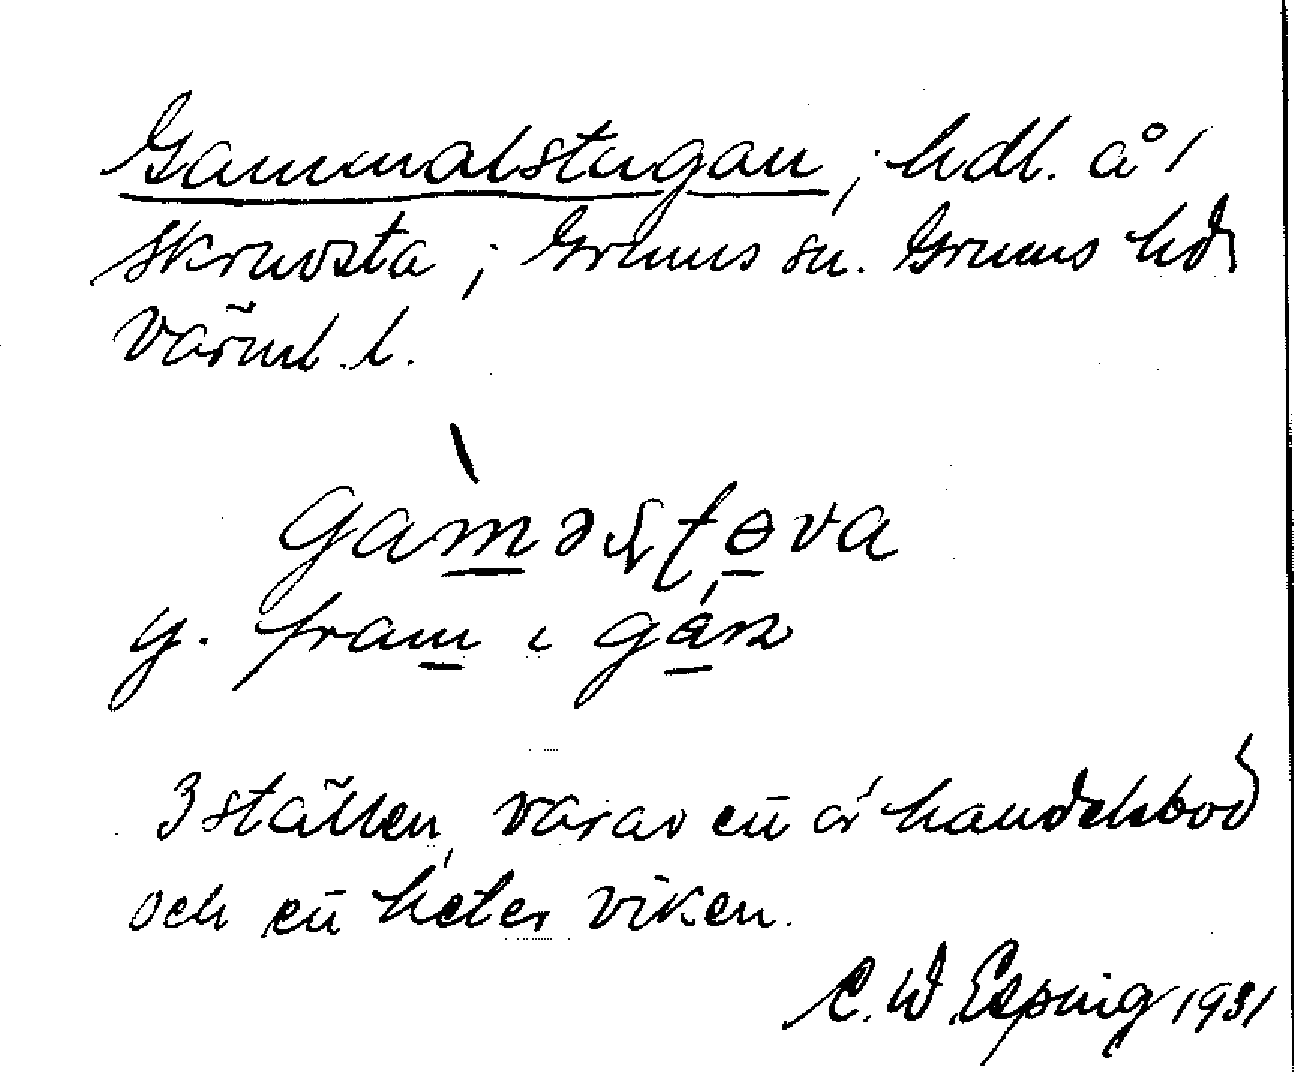 Gammalstugan, hdl. å 1
Skruvsta; Grums sn. Grums hd
Värml. l.
gàməʂʈɵva
y. fram i gán
3 ställen, varav en är handelsbod
och en heter viken.
C. W. Esping 1931